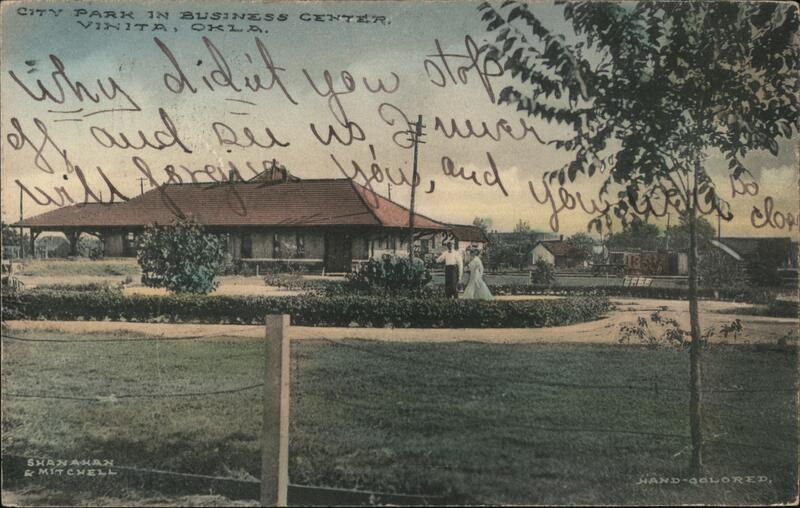 CITY PARK IN BUSINESS CENTER,
VINITA, OKLA.
why didn't you stop
off and see us, I never
will forgive you, and you were so close
SHANAHAN
& MITCHELL
HAND-COLORED.